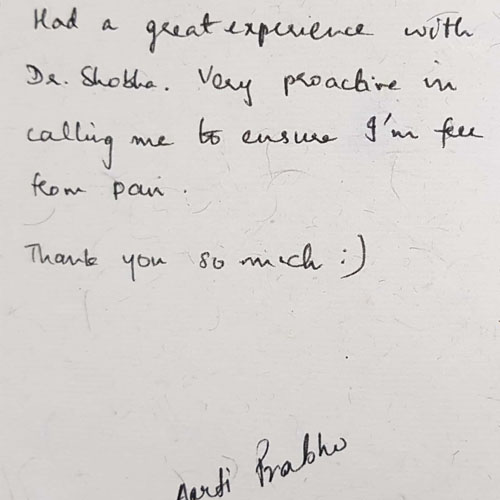 Had a great experience with
Dr. Shobha. Very proactive in
calling me to ensure I'm free
from pain.
Thank you so much :)
Aarti Prabhu